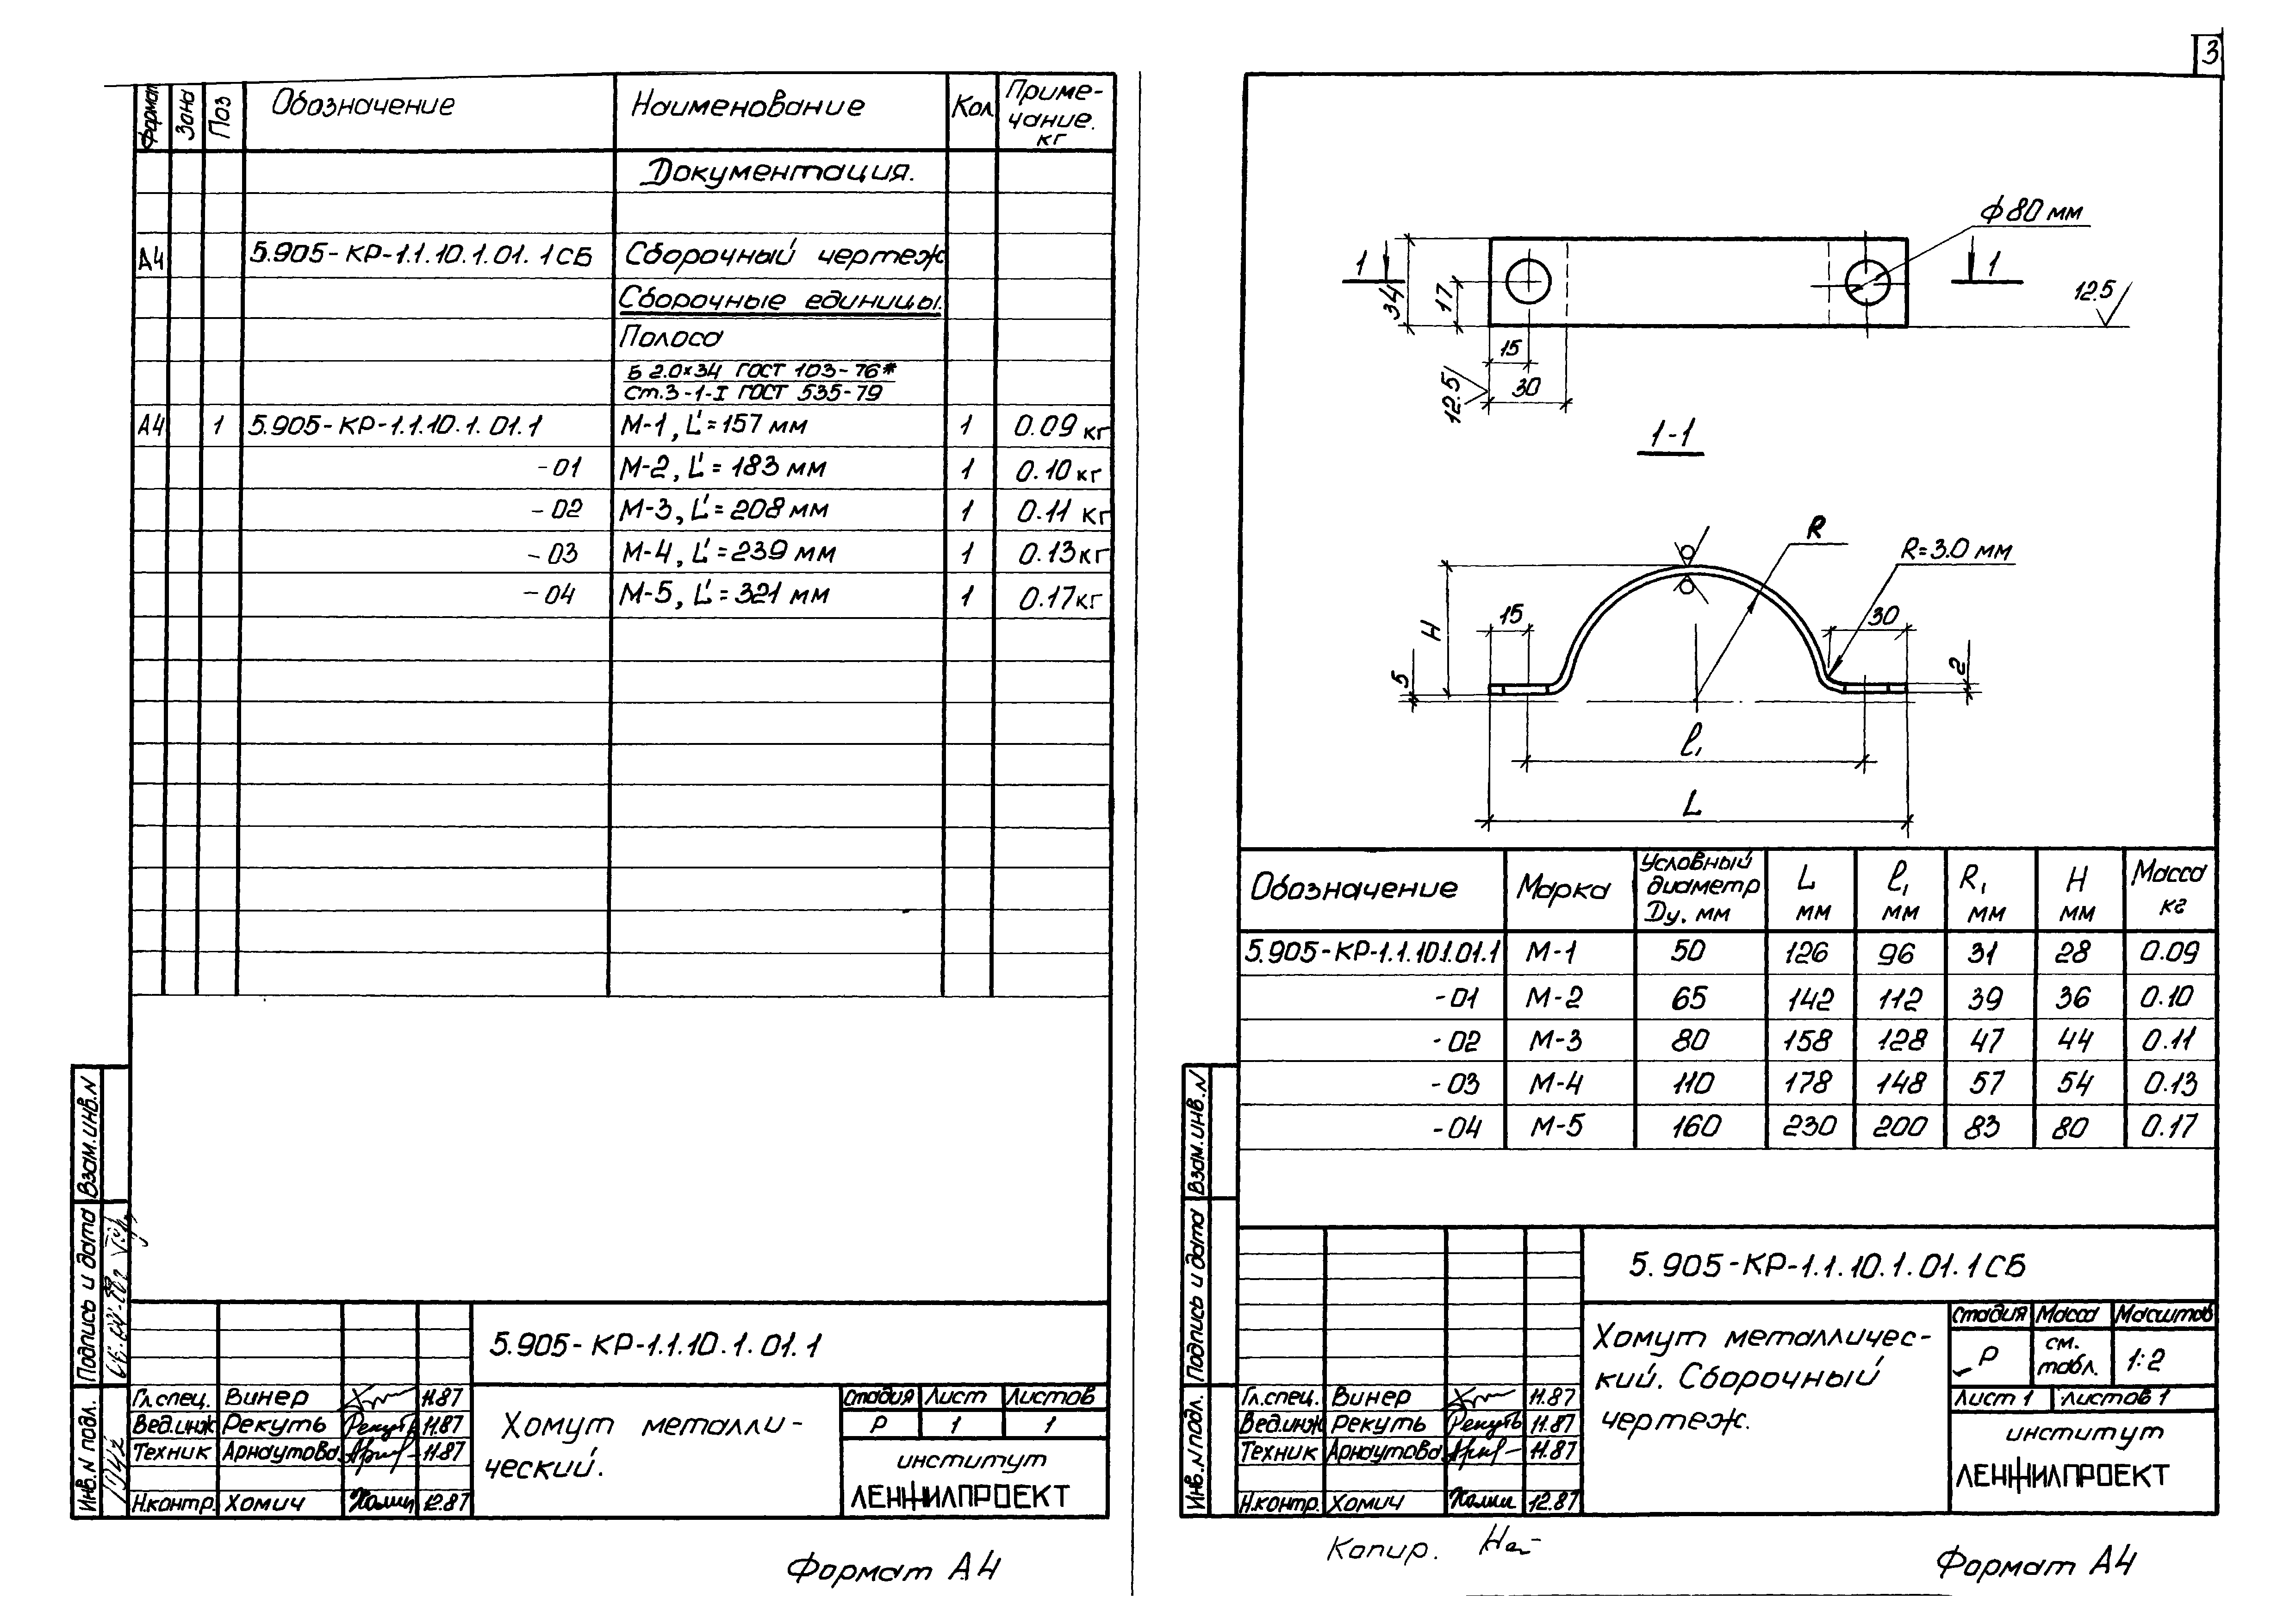 Формат Зона Поз Обозначение Наименование Кол Приме-
чание.
кг
Документация.
А4 5.905-КР-1.1.10.1.01.1СБ Сборочный чертеж
Сборочные единицы.
Полоса
Б 2.0×34 ГОСТ 103-76*
Ст.3-1-I ГОСТ 535-79
А4 1 5.905-КР-1.1.10.1.01.1 М-1, L'=157 мм 1 0.09 кг
-01 М-2, L'=183 мм 1 0.10 кг
-02 М-3, L'=208 мм 1 0.11 кг
-03 М-4, L'=239 мм 1 0.13 кг
-04 М-5, L'=321 мм 1 0.17 кг
Взам.инв.N
Подпись и дата
Инв.N подл.
5.905-КР-1.1.10.1.01.1
Гл.спец. Винер 11.87
Вед.инж Рекуть Рекуть 11.87
Техник Арнаутова 11.87
Н.контр. Хомич 12.87
Хомут металли-
ческий.
Стадия Лист Листов
Р 1 1
институт
ЛЕНЖИЛПРОЕКТ
Формат А4
3
ф80 мм
1 1
34
17
12.5
15
30
12.5
1-1
R
R=3.0 мм
15
30
H
5
2
ℓ₁
L
Обозначение Марка Условный
диаметр
Dу. мм L
мм ℓ₁
мм R₁
мм H
мм Масса
кг
5.905-КР-1.1.10.1.01.1 М-1 50 126 96 31 28 0.09
-01 М-2 65 142 112 39 36 0.10
-02 М-3 80 158 128 47 44 0.11
-03 М-4 110 178 148 57 54 0.13
-04 М-5 160 230 200 83 80 0.17
Взам.инв.N
Подпись и дата
Инв.N подл.
5.905-КР-1.1.10.1.01.1СБ
Гл.спец. Винер 11.87
Вед.инж Рекуть Рекуть 11.87
Техник Арнаутова 11.87
Н.контр. Хомич 12.87
Хомут металличес-
кий. Сборочный
чертеж.
Стадия Масса Масштаб
Р см.
табл. 1:2
Лист 1 Листов 1
институт
ЛЕНЖИЛПРОЕКТ
Копир.
Формат А4